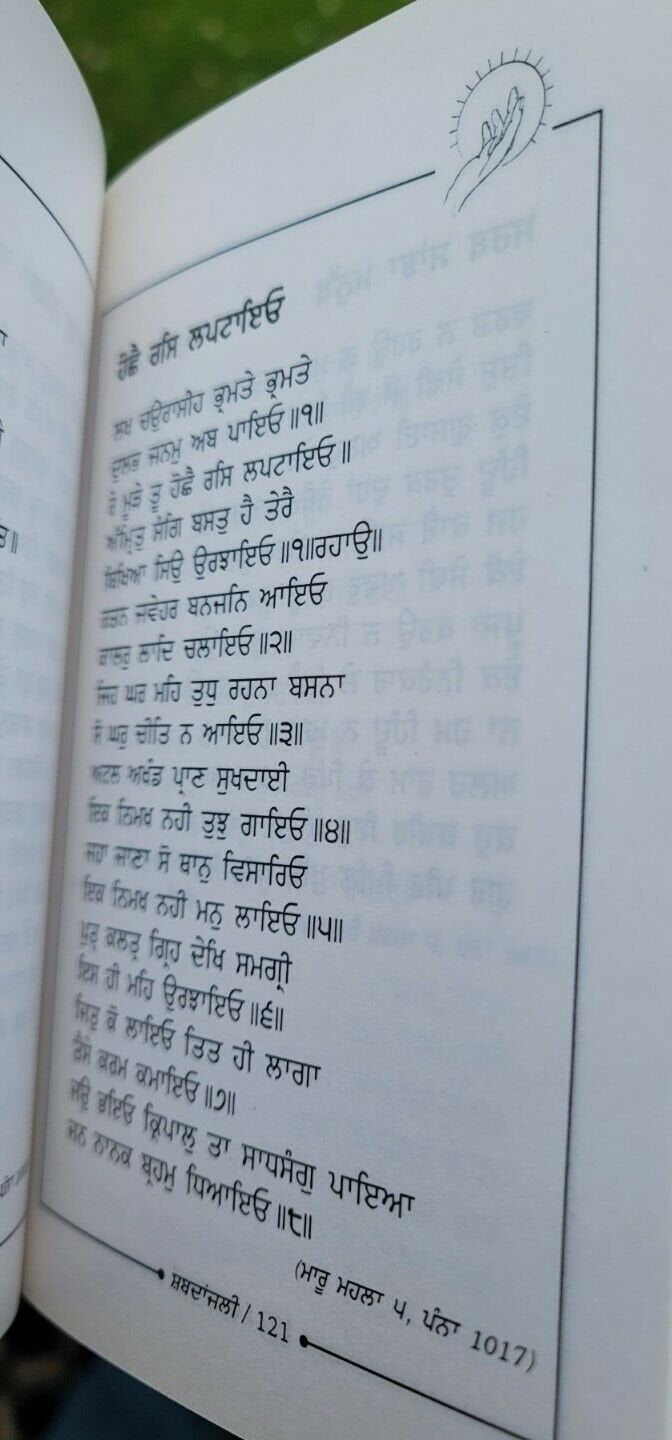 ਹੋਛੈ ਰਸਿ ਲਪਟਾਇਓ
ਲਖ ਚਉਰਾਸੀਹ ਭ੍ਰਮਤੇ ਭ੍ਰਮਤੇ
ਦੁਲਭ ਜਨਮੁ ਅਬ ਪਾਇਓ॥੧॥
ਰੇ ਮੂੜੇ ਤੂ ਹੋਛੈ ਰਸਿ ਲਪਟਾਇਓ॥
ਅੰਮ੍ਰਿਤੁ ਸੰਗਿ ਬਸਤੁ ਹੈ ਤੇਰੈ
ਬਿਖਿਆ ਸਿਉ ਉਰਝਾਇਓ॥੧॥ਰਹਾਉ॥
ਰਤਨ ਜਵੇਹਰ ਬਨਜਨਿ ਆਇਓ
ਕਾਲਰੁ ਲਾਦਿ ਚਲਾਇਓ॥੨॥
ਜਿਹ ਘਰ ਮਹਿ ਤੁਧੁ ਰਹਨਾ ਬਸਨਾ
ਸੋ ਘਰੁ ਚੀਤਿ ਨ ਆਇਓ॥੩॥
ਅਟਲ ਅਖੰਡ ਪ੍ਰਾਣ ਸੁਖਦਾਈ
ਇਕ ਨਿਮਖ ਨਹੀ ਤੁਝੁ ਗਾਇਓ॥੪॥
ਜਹਾ ਜਾਣਾ ਸੋ ਥਾਨੁ ਵਿਸਾਰਿਓ
ਇਕ ਨਿਮਖ ਨਹੀ ਮਨੁ ਲਾਇਓ॥੫॥
ਪੁਤ੍ਰ ਕਲਤ੍ਰ ਗ੍ਰਿਹ ਦੇਖਿ ਸਮਗ੍ਰੀ
ਇਸ ਹੀ ਮਹਿ ਉਰਝਾਇਓ॥੬॥
ਜਿਤੁ ਕੋ ਲਾਇਓ ਤਿਤ ਹੀ ਲਾਗਾ
ਤੈਸੇ ਕਰਮ ਕਮਾਇਓ॥੭॥
ਜਉ ਭਇਓ ਕ੍ਰਿਪਾਲੁ ਤਾ ਸਾਧਸੰਗੁ ਪਾਇਆ
ਜਨ ਨਾਨਕ ਬ੍ਰਹਮੁ ਧਿਆਇਓ॥੮॥
(ਮਾਰੂ ਮਹਲਾ ੫, ਪੰਨਾ 1017)
ਸ਼ਬਦਾਂਜਲੀ / 121